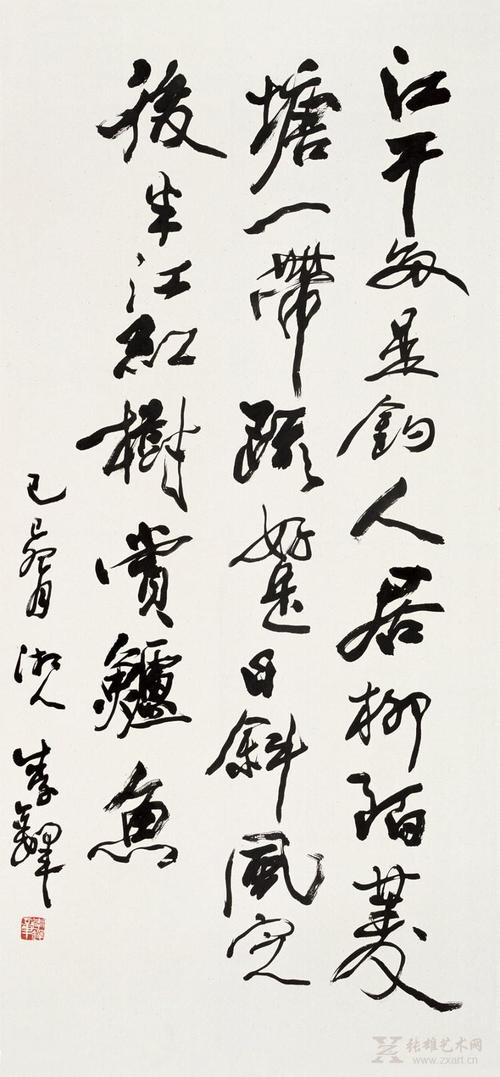 江干多是釣人居柳陌菱
塘一帶疏好是日斜風定
後半江紅樹賣鱸魚
己巳月湘人李鐸
张雄艺术网
www.zxart.cn